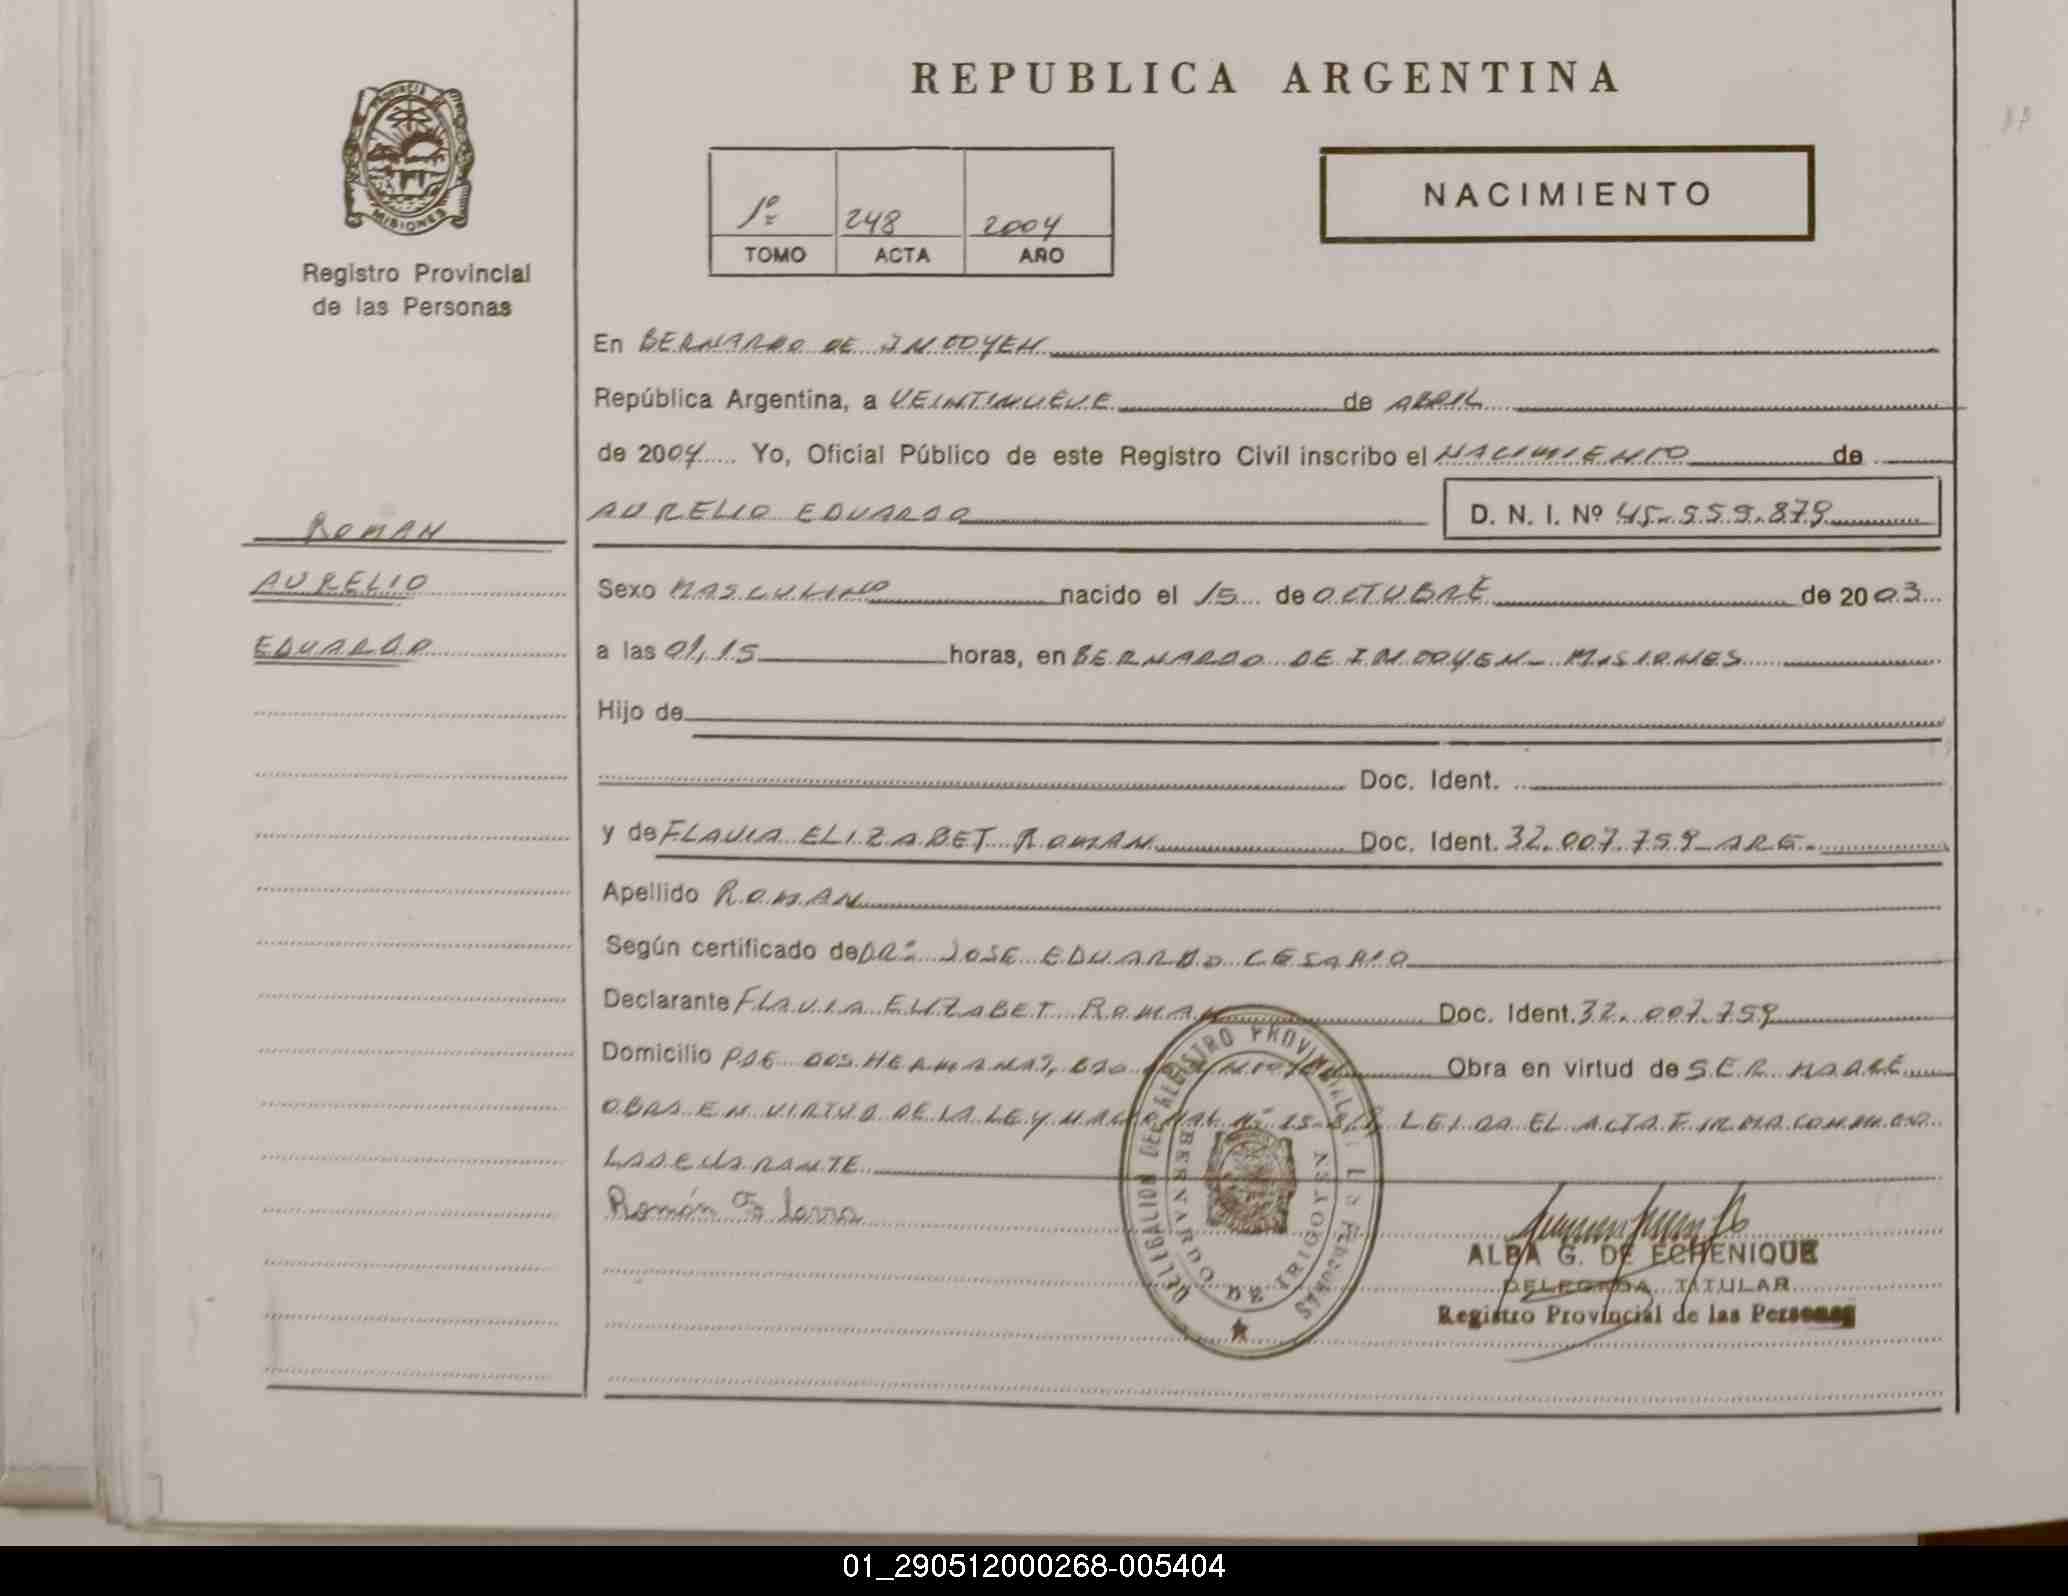 REPUBLICA ARGENTINA
PROVINCIA DE
MISIONES
Registro Provincial
de las Personas
1º 248 2004
TOMO ACTA AÑO
NACIMIENTO
En BERNARDO DE IRIGOYEN
República Argentina, a VEINTINUEVE de ABRIL
de 2004 Yo, Oficial Público de este Registro Civil inscribo el NACIMIENTO de
AURELIO EDUARDO D. N. I. Nº 45.559.879
ROMAN
AURELIO
EDUARDO
Sexo MASCULINO nacido el 15 de OCTUBRE de 2003
a las 01,15 horas, en BERNARDO DE IRIGOYEN - MISIONES
Hijo de
Doc. Ident.
y de FLAVIA ELIZABET ROMAN Doc. Ident. 32.007.759 - ARG.
Apellido ROMAN
Según certificado de DR. JOSE EDUARDO CESARIO
Declarante FLAVIA ELIZABET ROMAN Doc. Ident. 32.007.759
Domicilio PJE DOS HERMANAS, BDO Obra en virtud de SER MADRE
OBRA EN VIRTUD DE LA LEY NACIONAL Nº LEIDA EL ACTA FIRMA CONMIGO
LA DECLARANTE
Román
DELEGACION DEL REGISTRO PROVINCIAL DE LAS PERSONAS
BERNARDO DE IRIGOYEN
ALBA G. DE ECHENIQUE
DELEGADA TITULAR
Registro Provincial de las Personas
01_290512000268-005404